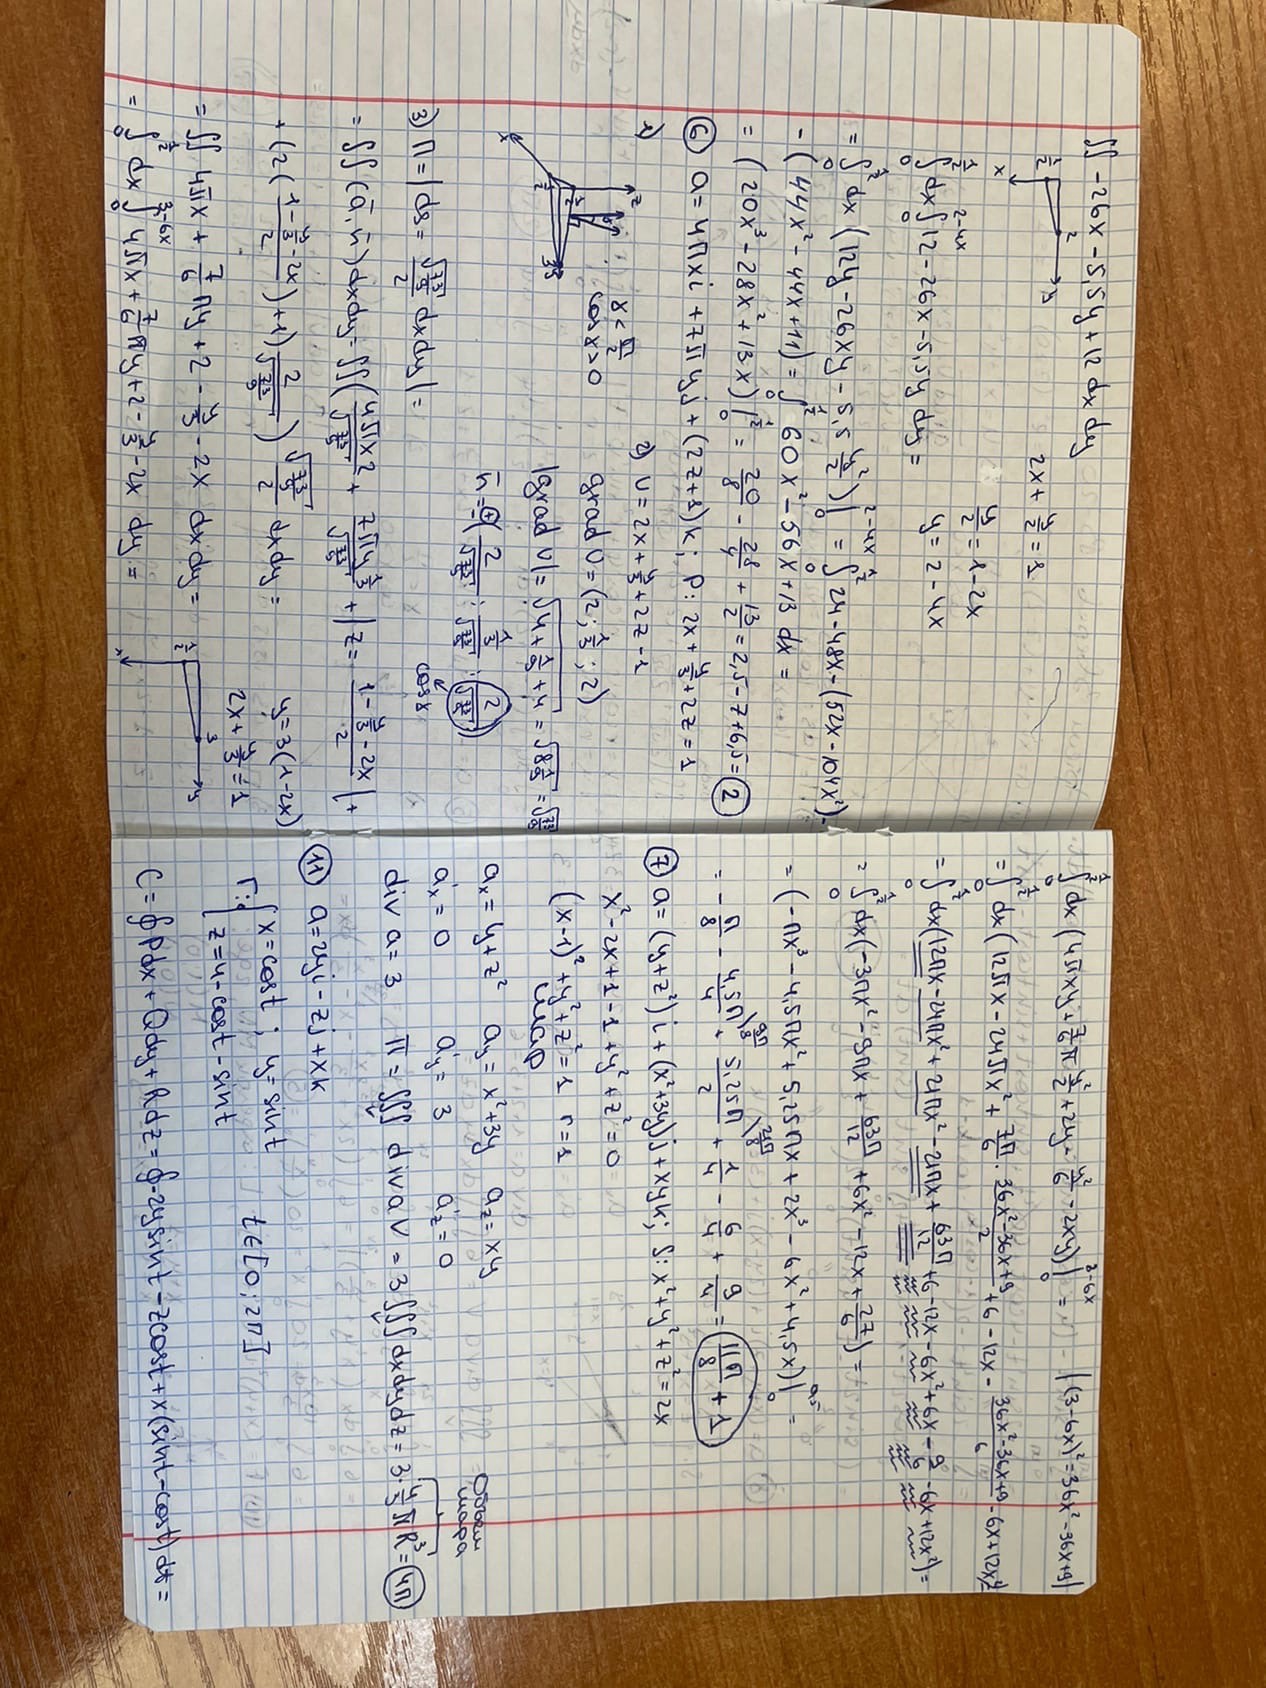 ∬ -26x - 5,5y + 12 dx dy
2
1/2 y
x
2x + y/2 = 1
y/2 = 1 - 2x
y = 2 - 4x
∫₀^{1/2} dx ∫₀^{2-4x} 12 - 26x - 5,5y dy =
= ∫₀^{1/2} dx (12y - 26xy - 5,5 y²/2)|₀^{2-4x} = ∫₀^{1/2} 24 - 48x - (52x - 104x²) -
- (44x² - 44x + 11) = ∫₀^{1/2} 60x² - 56x + 13 dx =
= (20x³ - 28x² + 13x)|₀^{1/2} = 20/8 - 28/4 + 13/2 = 2,5 - 7 + 6,5 = 2
⑥ a = 4πxi + 7πyj + (2z+1)k; P: 2x + y/3 + 2z = 1
1)
z
γ < π/2
cosγ > 0
1/2
1/2 3
x
2) U = 2x + y/3 + 2z - 1
grad U = (2; 1/3; 2)
|grad U| = √(4 + 1/9 + 4) = √(8 1/9) = √(73/9)
n̄ = ±(2/√(73/9); (1/3)/√(73/9); 2/√(73/9))
cosγ
3) П = |ds = √(73/9)/2 dxdy| =
= ∬ (ā, n̄) dxdy = ∬ (4πx2/√(73/9) + 7πy 1/3/√(73/9) + |z = (1 - y/3 - 2x)/2| +
+ (2((1 - y/3 - 2x)/2) + 1) 2/√(73/9)) √(73/9)/2 dxdy =
y = 3(1-2x)
2x + y/3 = 1
= ∬ 4πx + 7/6 πy + 2 - y/3 - 2x dxdy =
3
1/2 y
x
= ∫₀^{1/2} dx ∫₀^{3-6x} 4πx + 7/6 πy + 2 - y/3 - 2x dy =
∫₀^{1/2} dx (4πxy + 7/6 π y²/2 + 2y - y²/6 - 2xy)|₀^{3-6x} = |(3-6x)² = 36x² - 36x + 9|
= ∫₀^{1/2} dx (12πx - 24πx² + 7π/6 · (36x² - 36x + 9)/2 + 6 - 12x - (36x² - 36x + 9)/6 - 6x + 12x²) =
= ∫₀^{1/2} dx (12πx - 24πx² + 21πx² - 21πx + 63π/12 + 6 - 12x - 6x² + 6x - 9/6 - 6x + 12x²) =
= ∫₀^{1/2} dx (-3πx² - 9πx + 63π/12 + 6x² - 12x + 27/6) =
= (-πx³ - 4,5πx² + 5,25πx + 2x³ - 6x² + 4,5x)|₀^{0,5} =
= -π/8 - 4,5π/4 \ 9π/8 + 5,25π/2 \ 21π/8 + 1/4 - 6/4 + 9/4 = 11π/8 + 1
⑦ a = (y+z²)i + (x²+3y)j + xyk; S: x²+y²+z² = 2x
x² - 2x + 1 - 1 + y² + z² = 0
(x-1)² + y² + z² = 1 r = 1
шар
aₓ = y+z² a_y = x²+3y a_z = xy
a'ₓ = 0 a'_y = 3 a'_z = 0
Объем
шара
div a = 3 П = ∭_V div a V = 3∭_V dxdydz = 3·4/3 πR³ = 4π
⑪ a = 2yi - zj + xk
Г: { x = cost; y = sint
z = 4 - cost - sint
t ∈ [0; 2π]
C = ∮Pdx + Qdy + Rdz = ∮-2y sint - z cost + x(sint - cost) dt =